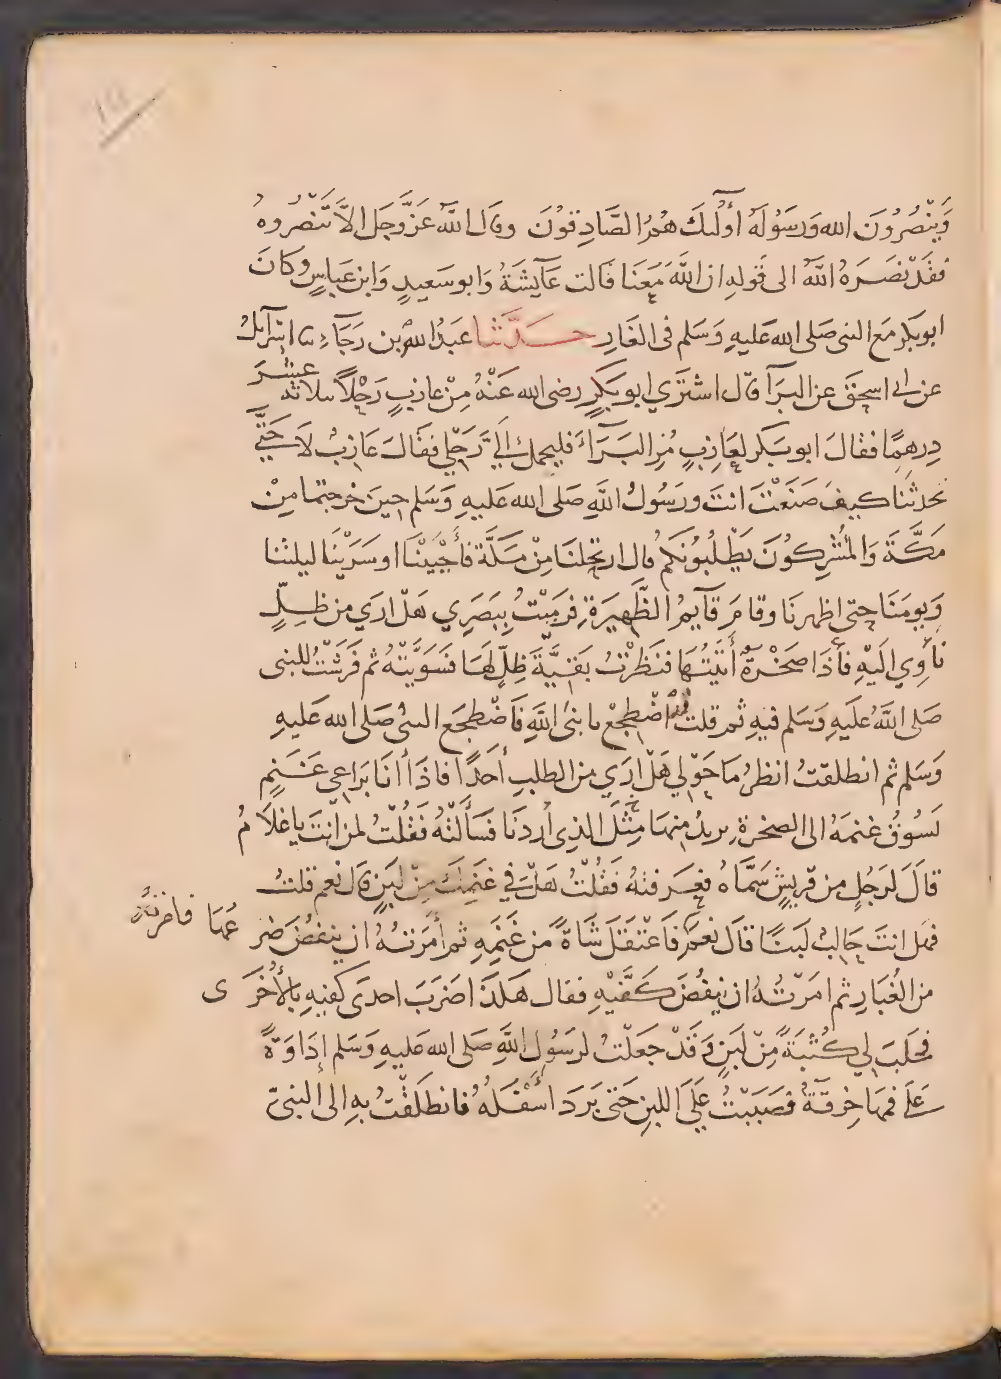 وَيَنْصُرُونَ الله وَرَسُولَهُ أولٰئكَ هُمُ الصَّادِقُونَ وقال اللَّه عَزَّ وَجَل الاَّ تَنْصُروهُ
فقَدْ نَصَرَهُ اللَّهُ الى قولِهِ ان اللَّهَ مَعَنَا قَالت عَآيشَةُ وَابو سَعِيدٍ وَابن عَباسٍ وَكانَ
ابو بَكرٍ مَع النبى صَلى الله عَليهِ وَسَلم فى الغَارِ حَدَّثنا عَبدُ الله بن رَجَآءٍ نا اسْرآيلُ
عن ابى اسحٰقَ عن البرَآ قال اشتَرَي ابو بَكرٍ رضى الله عَنْهُ مِنْ عازبٍ رَحْلاً بثلاثة عشَرَ
دِرهمًا فقالَ ابو بَكر لعَازبٍ مُرِ البَرَآءَ فليحمل اِلَيَّ رَحْلِي فقَالَ عَازبٌ لاَ حَتَّى
تحدثنَا كيفَ صَنَعْتَ انتَ ورَسُولُ اللَّهِ صَلى الله عَليهِ وَسَلم حِينَ خرجتما مِنْ
مَكَّةَ وَالمُشْركُونَ يَطْلُبُونَكمْ قال ارتحلنَا مِنْ مَكَّةَ فأحْيَيْنَا او سَرَيْنَا ليلتنا
وَيومَنَا حتى اظهرنَا وقامَ قآيمُ الظَّهِيرَةِ فرَمَيْتُ بِبَصَرِي هَلْ ارَي من ظِلٍّ
نأوِي اليْهِ فأذَا صَخْرَةٌ أتَيْتُهَا فنَظَرْتُ بَقيَّةَ ظِلٍّ لهَا فسَوَيْتُهُ ثم فَرَشْتُ للنبى
صَلى اللَّهُ عَليَهِ وَسَلم فيهِ ثم قلتُ له اضْطجعْ يا نبيَ اللَّهِ فَاضْطجَعَ النبىُ صَلى الله عَليهِ
وَسَلم ثم انطلقتُ انظرُ مَا حَوْلي هَلْ ارَي من الطلبِ أحَدًا فاذَا أنَا برَاعِي غَنَمٍ
يَسُوقُ غنمَهُ الى الصخرةِ يريدُ منهَا مِثْلَ الذِى أردنَا فسَألتُهُ فقُلْتُ لمن انتَ ياغُلاَمُ
قالَ لرَجُلٍ من قريشٍ سَمَّاهُ فعَرَفتهُ فقُلْتُ هَلْ في غنَمِكَ مِنْ لَبَنٍ قال نعم قلتُ
فهل انتَ حَالبٌ لَبنًا قالَ نعَمْ فَاعْتَقَلَ شَاةً من غنَمِهِ ثم أمَرْتهُ ان ينفُضَ ضرعَهَا فامرتهُ
من الغُبَارِ ثم امَرْتُهُ ان ينفُضَ كَفَّيْهِ فقال هَكَذَا ضرَبَ احدَى كفيهِ بالأخرَى
فحَلَبَ لي كُثْبَةً مِنْ لَبَنٍ وَقَدْ جَعَلْتُ لرَسُولِ اللَّهِ صَلى الله عَليهِ وَسَلم إدَاوَةً
عَلى فمهَا خِرقةٌ فصَبَبْتُ عَلَى اللبنِ حَتى بَرَدَ اسْفَلهُ فانطلقْتُ بهِ الى النبيّ